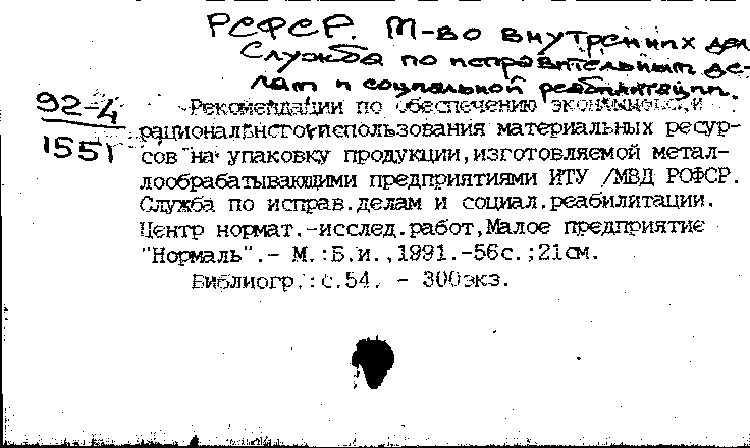 РСФСР. М-во внутренних дел
Служба по исправительным де-
лам и социальной реабилитации.
92-4
1551
Рекомендации по обеспечению экономии и
рационального использования материальных ресур-
сов на упаковку продукции,изготовляемой метал-
лообрабатывающими предприятиями ИТУ /МВД РСФСР.
Служба по исправ.делам и социал.реабилитации.
Центр нормат.-исслед.работ,Малое предприятие
"Нормаль".- М.:Б.и.,1991.-56с.;21см.
Библиогр.:с.54. - 300экз.